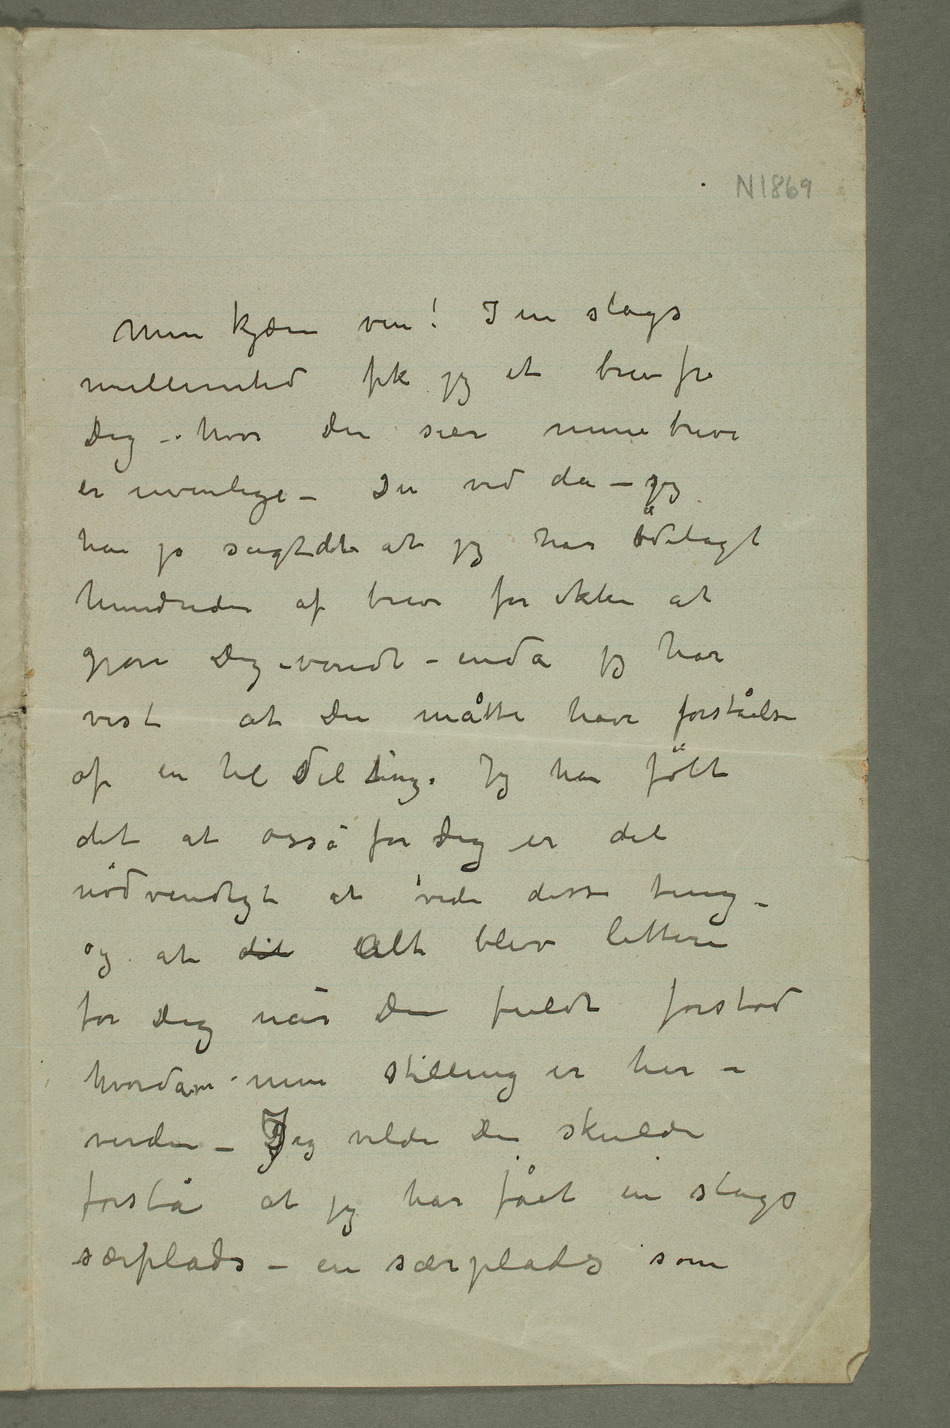 N1869
Min kjære ven! I en slags
mellemtid fik jeg et brev fra
Dig – hvor du sier mine breve
er uvenlige – Du ved da – jeg
har jo sagt det at jeg har ödelagt
hundreder af breve for ikke at
gjøre Dig vondt – enda jeg har
vist at Du måtte have forståelse
af en hel Del ting. Jeg har fölt
det at også for Dig er det
nödvendigt at vide disse ting –
og at det Alt blev lettere
for Dig når Du fuldt forstod
hvordan min stilling er her i
verden – Jeg vilde Du skulde
forstå at jeg har fået en slags
særplads – en særplads som